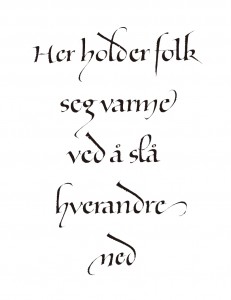 Her holder folk
seg varme
ved å slå
hverandre
ned